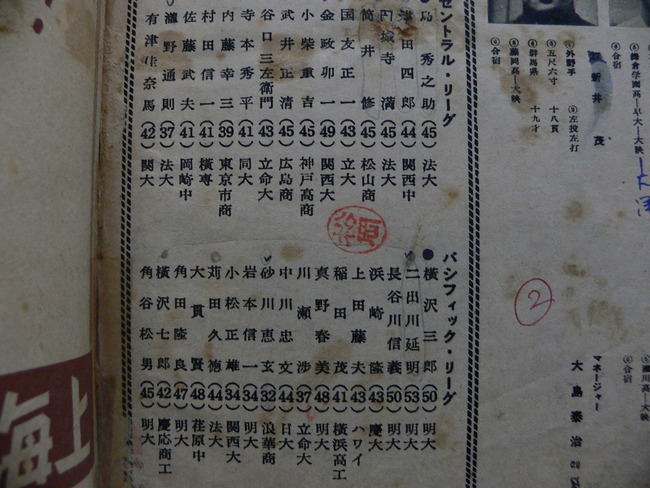 セントラル・リーグ
島秀之助(45)法大
津田四郎(44)関西中
円城寺満(45)法大
筒井修(45)松山商
国友正一(43)立大
金政卯一(49)関西大
小柴重吉(45)神戸高商
武井正清(45)広島商
谷口三左衛門(43)立命大
寺本秀平(41)同大
内藤幸三(39)東京市商
村田信一(41)横専
佐藤武夫(41)岡崎中
瀧野通則(37)法大
有津佳奈馬(42)関大
パシフィック・リーグ
●横沢三郎(50)明大
二出川延明(53)明大
長谷川信義(50)明大
浜崎隆(43)慶大
上田藤夫(43)ハワイ
稲田茂(41)横浜高工
真野春美(48)明大
川瀬渉(37)立命大
中川忠文(44)日大
砂川恵玄(32)浪華商
岩本信一(34)明大
小松正雄(34)関西大
苅田久徳(44)法大
大貫賢(48)荏原中
角田隆良(47)明大
横沢七郎(42)慶応商工
角谷松男(45)明大
鎌倉学園高―早大―大映
合宿
新井茂
外野手
左投左打
五尺六寸
十八貫
群馬県
十九才
盛岡高―大映
合宿
②
マネージャー
大島泰治
合宿
上海